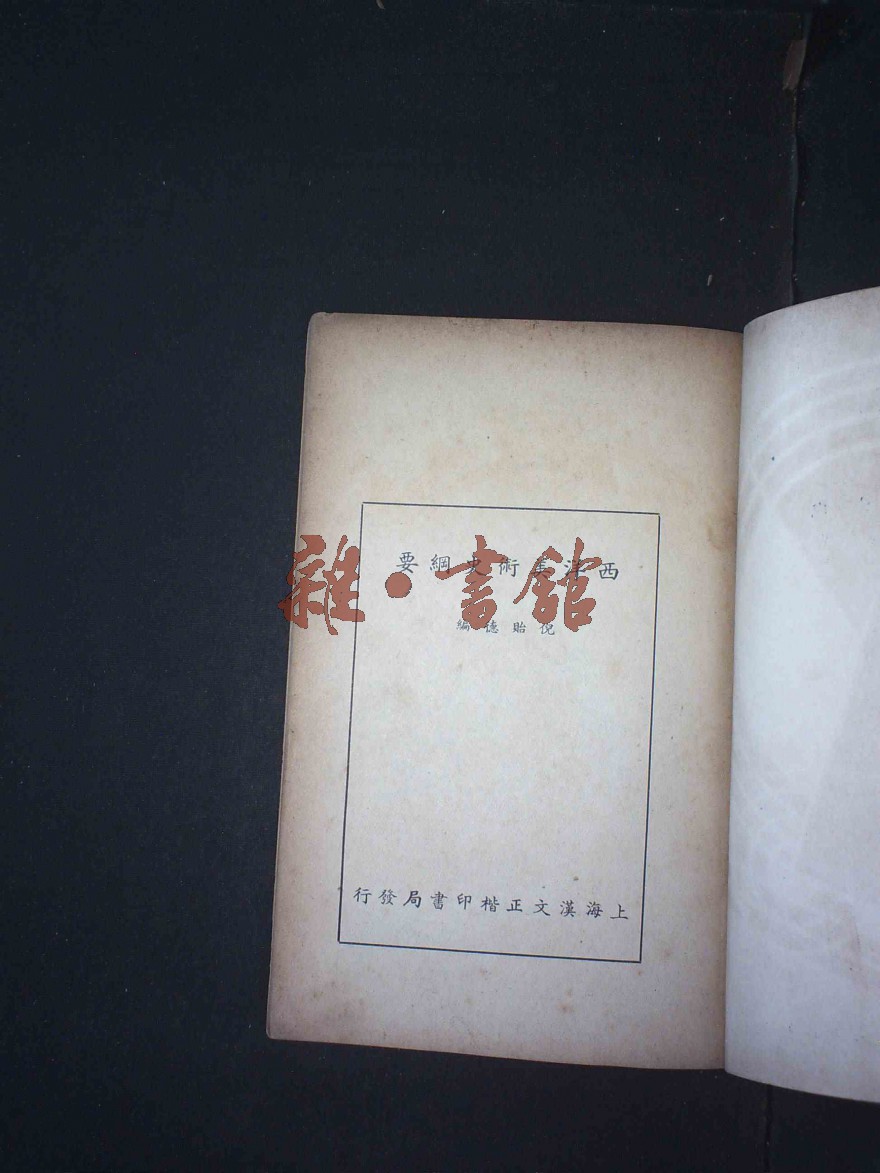 西洋美術史綱要
倪貽德編
雜·書館
上海漢文正楷印書局發行